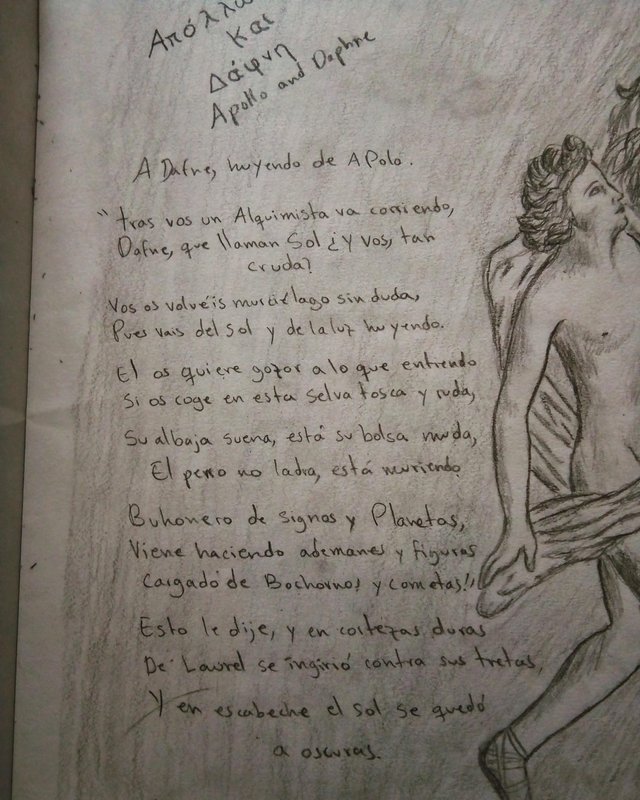 Απόλλω
και
Δάφνη
Apollo and Daphne
A Dafne, huyendo de Apolo.
"tras vos un Alquimista va corriendo,
Dafne, que llaman Sol ¿y vos, tan
cruda?
Vos os volvéis murciélago sin duda,
Pues vais del Sol y de la luz huyendo.
El os quiere gozar a lo que entiendo
Si os coge en esta Selva tosca y ruda,
Su albaja suena, está su bolsa muda,
El perro no ladra, está muriendo
Buhonero de signos y Planetas,
Viene haciendo ademanes y figuras
Cargado de Bochornos y cometas!"
Esto le dije, y en cortezas duras
De Laurel se ingirió contra sus tretas,
Y en escabeche el Sol se quedó
a oscuras.